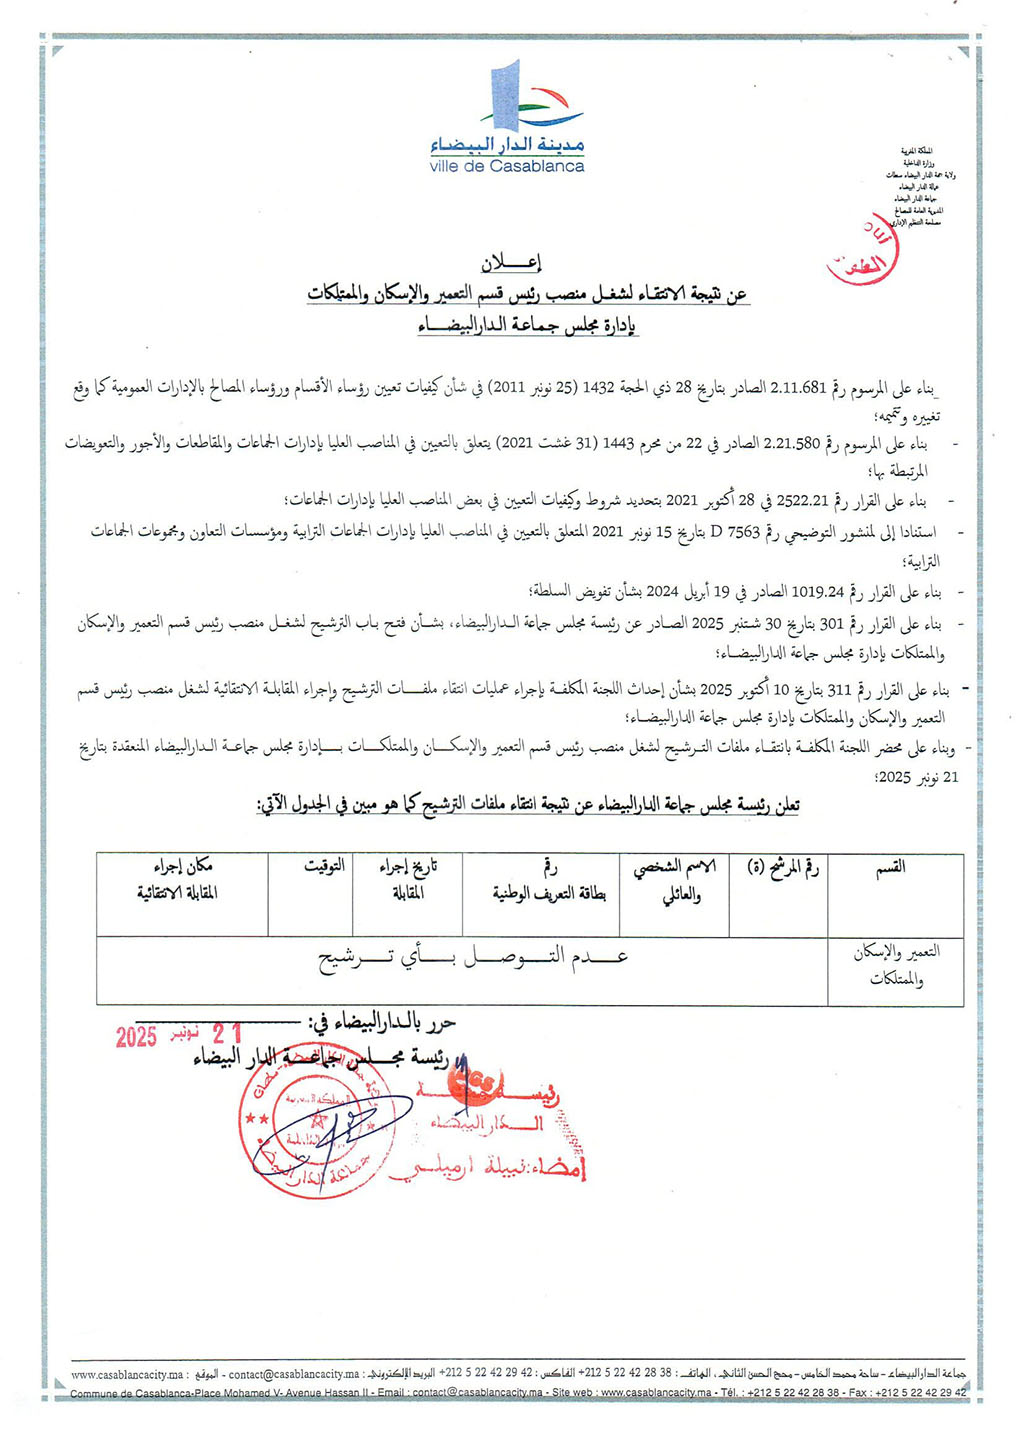 مدينة الدار البيضاء
ville de Casablanca
المملكة المغربية
وزارة الداخلية
ولاية جهة الدار البيضاء سطات
عمالة الدار البيضاء
جماعة الدار البيضاء
المديرية العامة للمصالح
مصلحة التنظيم الإداري
إعـــلان
عن نتيجة الانتقاء لشغـل منصب رئيس قسم التعمير والإسكان والممتلكات
بإدارة مجلس جماعة الدارالبيضـــاء
بناء على المرسوم رقم 2.11.681 الصادر بتاريخ 28 ذي الحجة 1432 (25 نونبر 2011) في شأن كيفيات تعيين رؤساء الأقسام ورؤساء المصالح بالإدارات العمومية كما وقع
تغييره وتتميمه؛
- بناء على المرسوم رقم 2.21.580 الصادر في 22 من محرم 1443 (31 غشت 2021) يتعلق بالتعيين في المناصب العليا بإدارات الجماعات والمقاطعات والأجور والتعويضات
المرتبطة بها؛
- بناء على القرار رقم 2522.21 في 28 أكتوبر 2021 بتحديد شروط وكيفيات التعيين في بعض المناصب العليا بإدارات الجماعات؛
- استنادا إلى لمنشور التوضيحي رقم D 7563 بتاريخ 15 نونبر 2021 المتعلق بالتعيين في المناصب العليا بإدارات الجماعات الترابية ومؤسسات التعاون ومجموعات الجماعات
الترابية؛
- بناء على القرار رقم 1019.24 الصادر في 19 أبريل 2024 بشأن تفويض السلطة؛
- بناء على القرار رقم 301 بتاريخ 30 شتنبر 2025 الصادر عن رئيسة مجلس جماعة الـدارالبيضاء، بشـأن فتـح بـاب الترشيح لشغـل منصب رئيس قسم التعمير والإسكان
والممتلكات بإدارة مجلس جماعة الدارالبيضـاء؛
- بناء على القرار رقم 311 بتاريخ 10 أكتوبر 2025 بشأن إحداث اللجنة المكلفـة بإجراء عمليات انتقاء ملفـات الترشيح وإجراء المقابلـة الانتقائية لشغل منصب رئيس قسم
التعمير والإسكان والممتلكات بإدارة مجلس جماعة الدارالبيضـاء؛
- وبناء على محضر اللجنة المكلفـة بانتقـاء ملفات التـرشيح لشغل منصب رئيس قسم التعمير والإسكـان والممتلكـات بـإدارة مجلس جماعـة الـدارالبيضاء المنعقدة بتاريخ
21 نونبر 2025؛
تعلن رئيسة مجلس جماعة الدارالبيضاء عن نتيجة انتقاء ملفات الترشيح كما هو مبين في الجدول الآتي:
القسم
رقم المرشح (ة)
الاسم الشخصي
والعائلي
رقم
بطاقة التعريف الوطنية
تاريخ إجراء
المقابلة
التوقيت
مكان إجراء
المقابلة الانتقائية
التعمير والإسكان
والممتلكات
عـدم التـوصل بـأي تـرشيح
حرر بالدارالبيضاء في:
21 نونبر 2025
رئيسة مجـلس جماعـة الدار البيضاء
الـدار البيضاء
إمضاء: نبيلة ارميلـي
جماعة الدارالبيضاء - ساحة محمد الخامس - محج الحسن الثاني. الهاتف : 38 28 42 22 5 212+ الفاكس : 42 29 42 22 5 212+ البريد الإلكتروني : contact@casablancacity.ma - الموقع : www.casablancacity.ma
Commune de Casablanca-Place Mohamed V- Avenue Hassan II - Email : contact@casablancacity.ma - Site web : www.casablancacity.ma - Tél. : +212 5 22 42 28 38 - Fax : +212 5 22 42 29 42